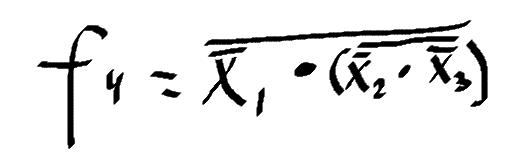 $f_4 = \overline{\overline{X}_1 \cdot (\overline{\overline{X}_2 \cdot \overline{X}_3})}$